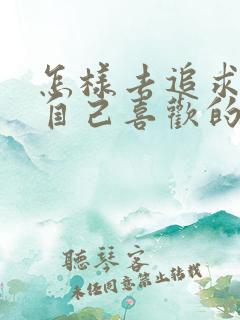 怎樣去追求
自己喜歡的
聽琴客
未经同意禁止转载